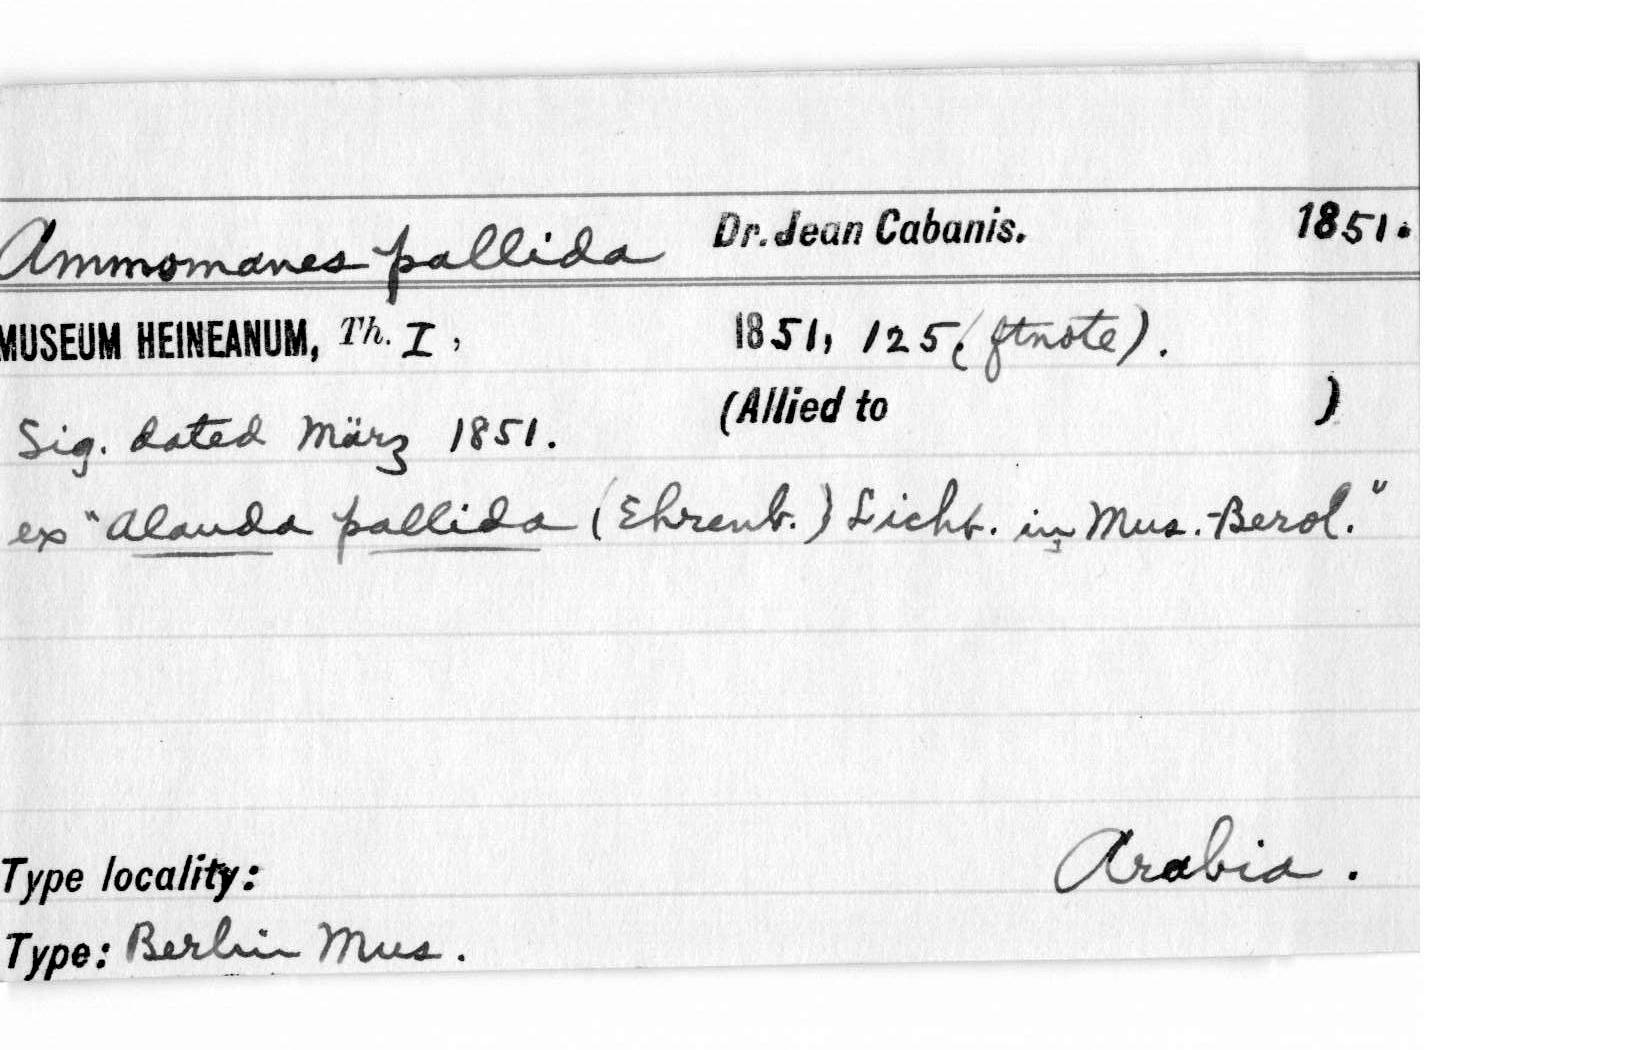 Ammomanes pallida Dr. Jean Cabanis. 1851.
MUSEUM HEINEANUM, Th. I, 1851, 125 (ftnote).
(Allied to )
Sig. dated März 1851.
ex "Alauda pallida (Ehrenb.) Licht. in Mus. Berol."
Arabia.
Type locality:
Type: Berlin Mus.